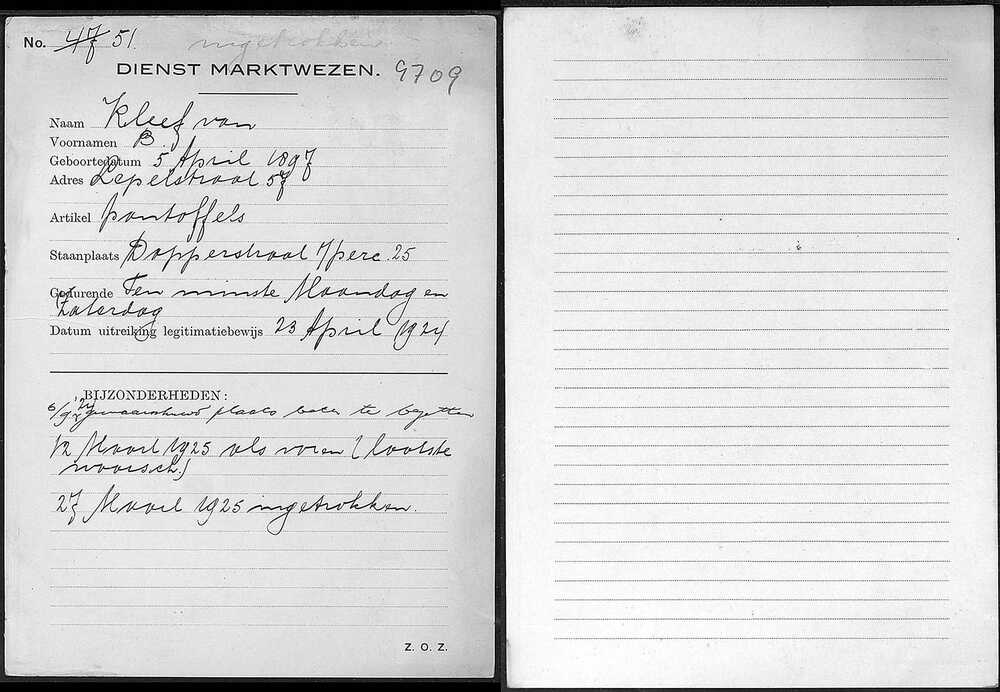 No. 47 51. ingetrokken
DIENST MARKTWEZEN. 9709
Naam Kleef van
Voornamen B.
Geboortedatum 5 April 1897
Adres Lepelstraat 57
Artikel pantoffels
Staanplaats Dapperstraat t/perc. 25
Gedurende Ten minste Maandag en
Zaterdag
Datum uitreiking legitimatiebewijs 23 April 1924
BIJZONDERHEDEN:
6/9 '24 gewaarschuwd plaats beter te bezetten
12 Maart 1925 als voren (laatste
waarsch.)
27 Maart 1925 ingetrokken.
Z. O. Z.